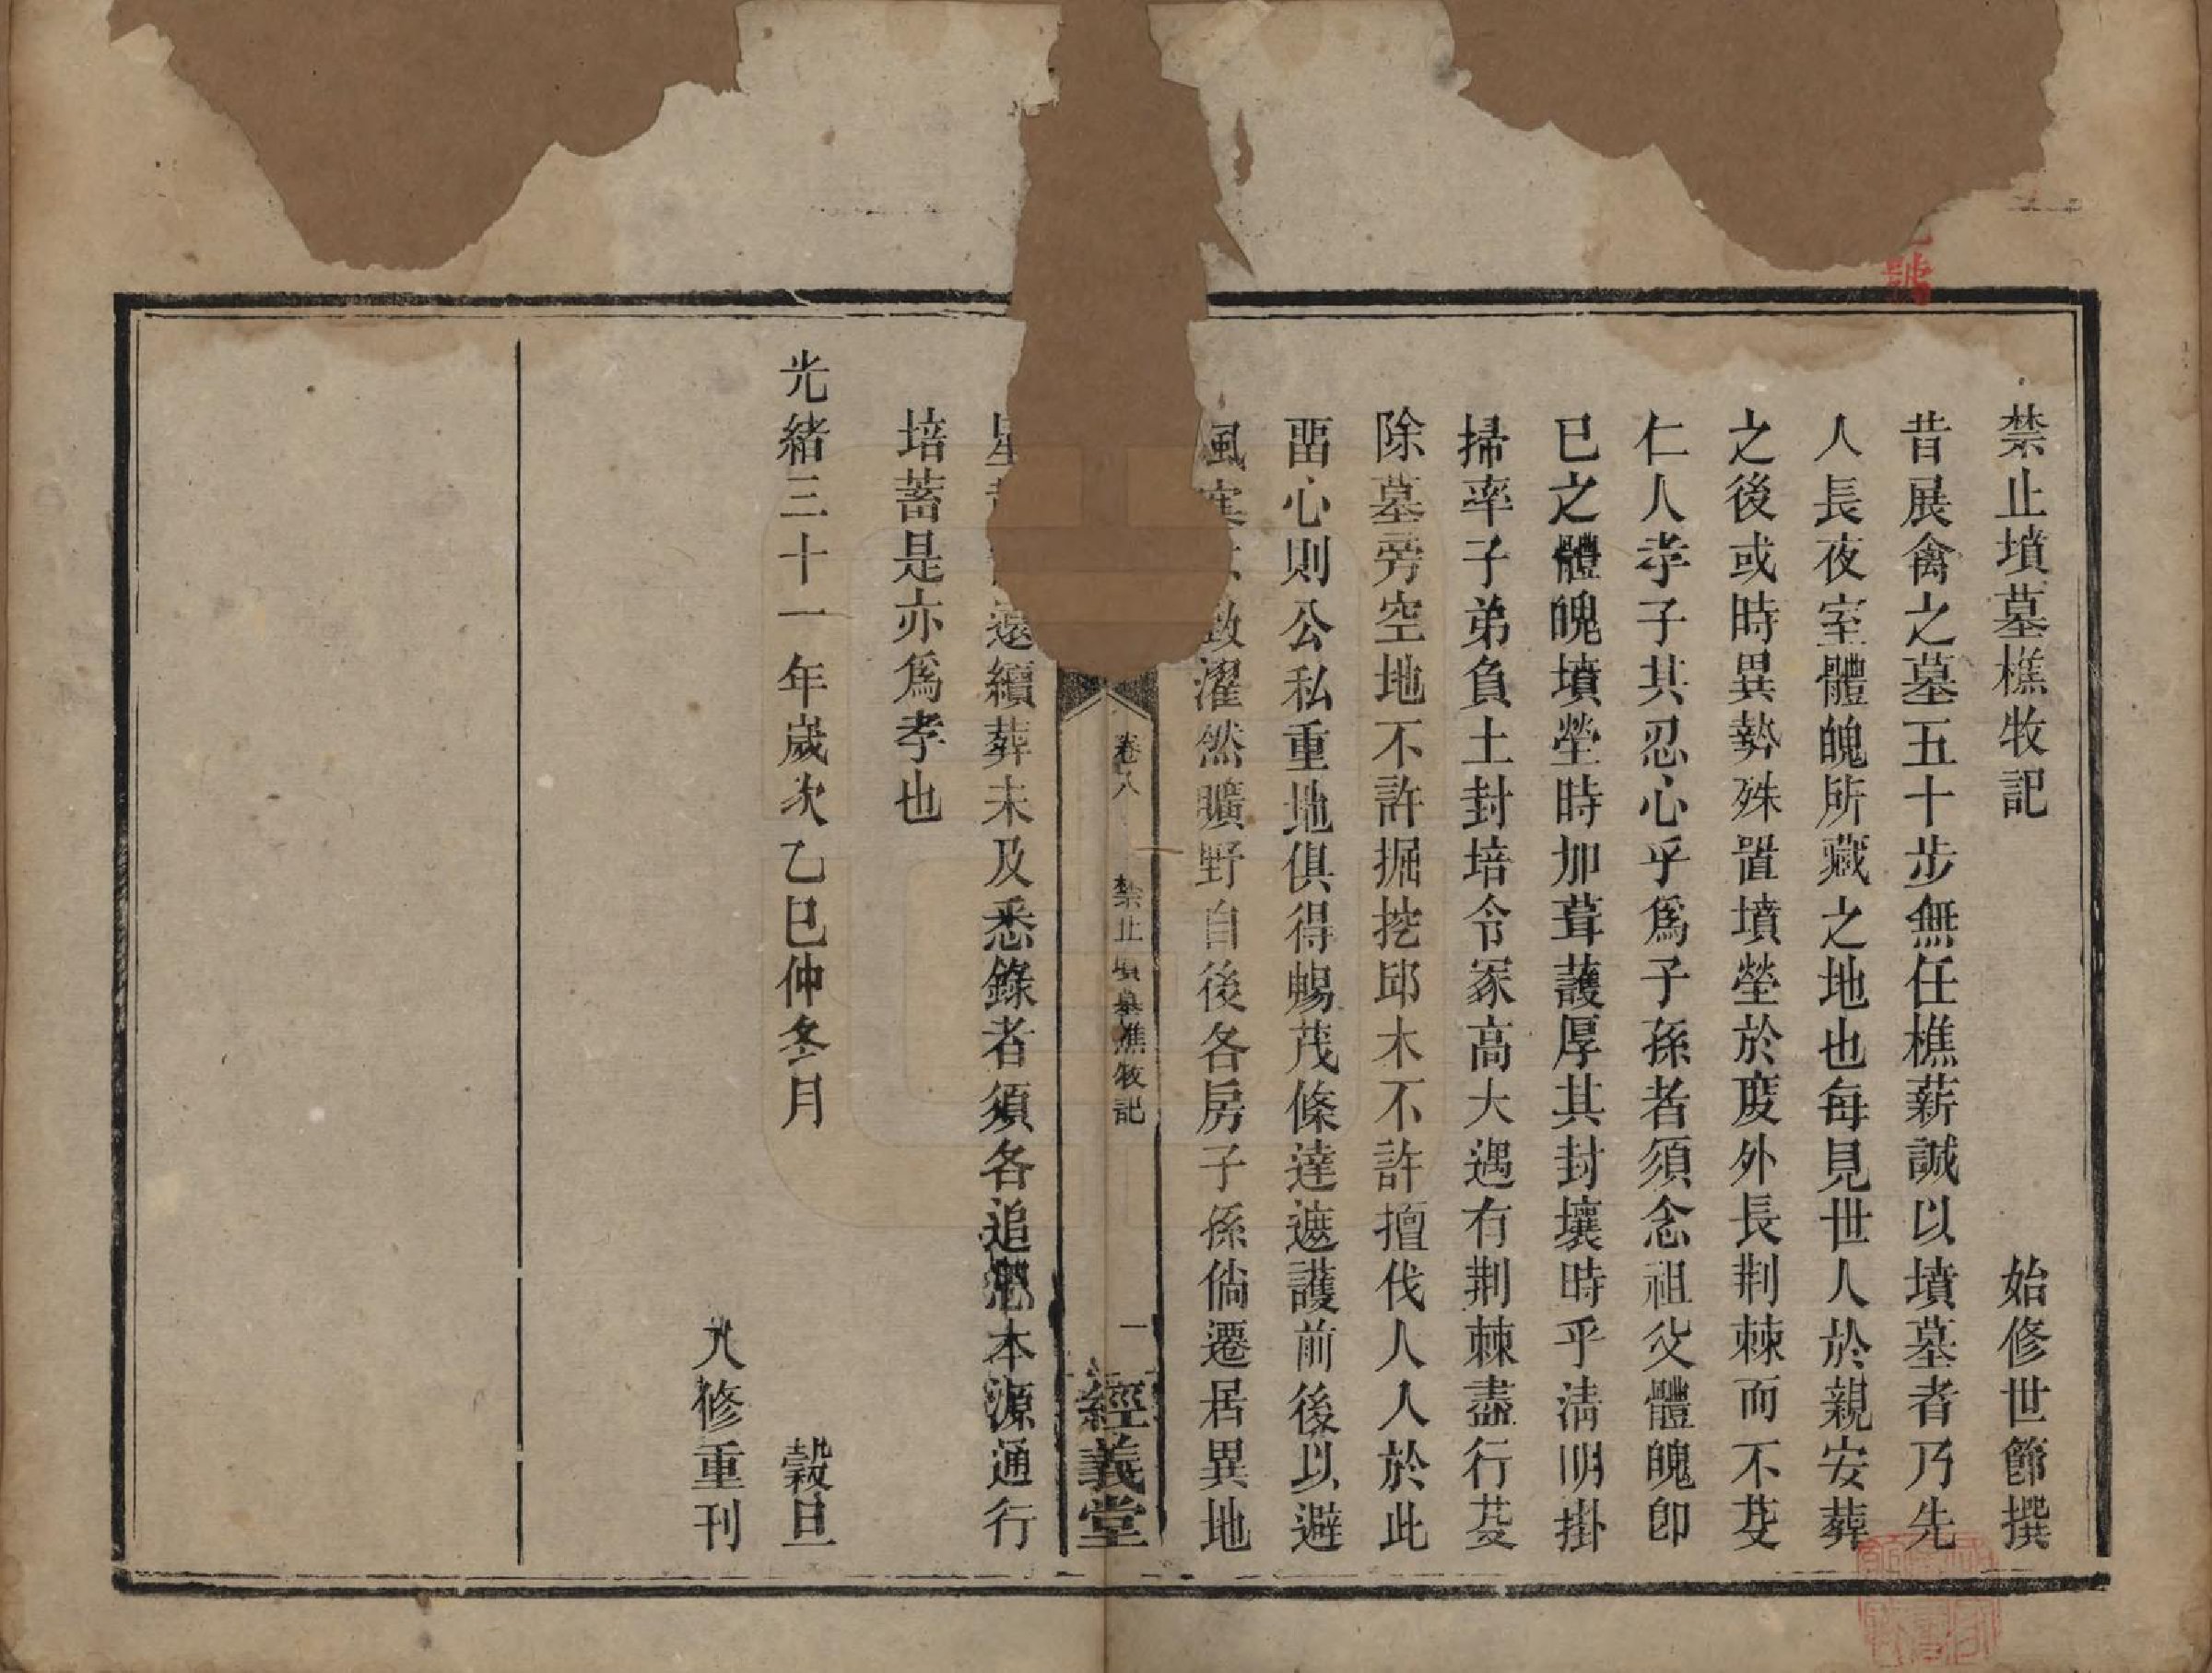 禁止墳墓樵牧記　始修世節撰
昔展禽之墓五十步無任樵薪誠以墳墓者乃先
人長夜室體魄所藏之地也每見世人於親安葬
之後或時異勢殊置墳塋於度外長荆棘而不芟
仁人孝子其忍心乎爲子孫者須念祖父體魄卽
已之體魄墳塋時加葺護厚其封壤時乎淸明掛
掃率子弟負土封培令冢高大遇有荆棘盡行芟
除墓旁空地不許掘挖邱木不許擅伐人人於此
畱心則公私重地俱得暢茂條達遮護前後以避
風寒致濯然曠野自後各房子孫倘遷居異地
卷八　禁止墳墓樵牧記　一　經義堂
星遠續葬未及悉錄者須各追本源通行
培蓄是亦爲孝也
光緒三十一年歲次乙巳仲冬月　穀旦
八修重刊